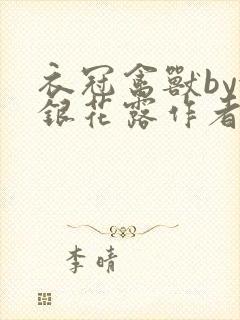 衣冠禽獸by
銀花露作者
李晴